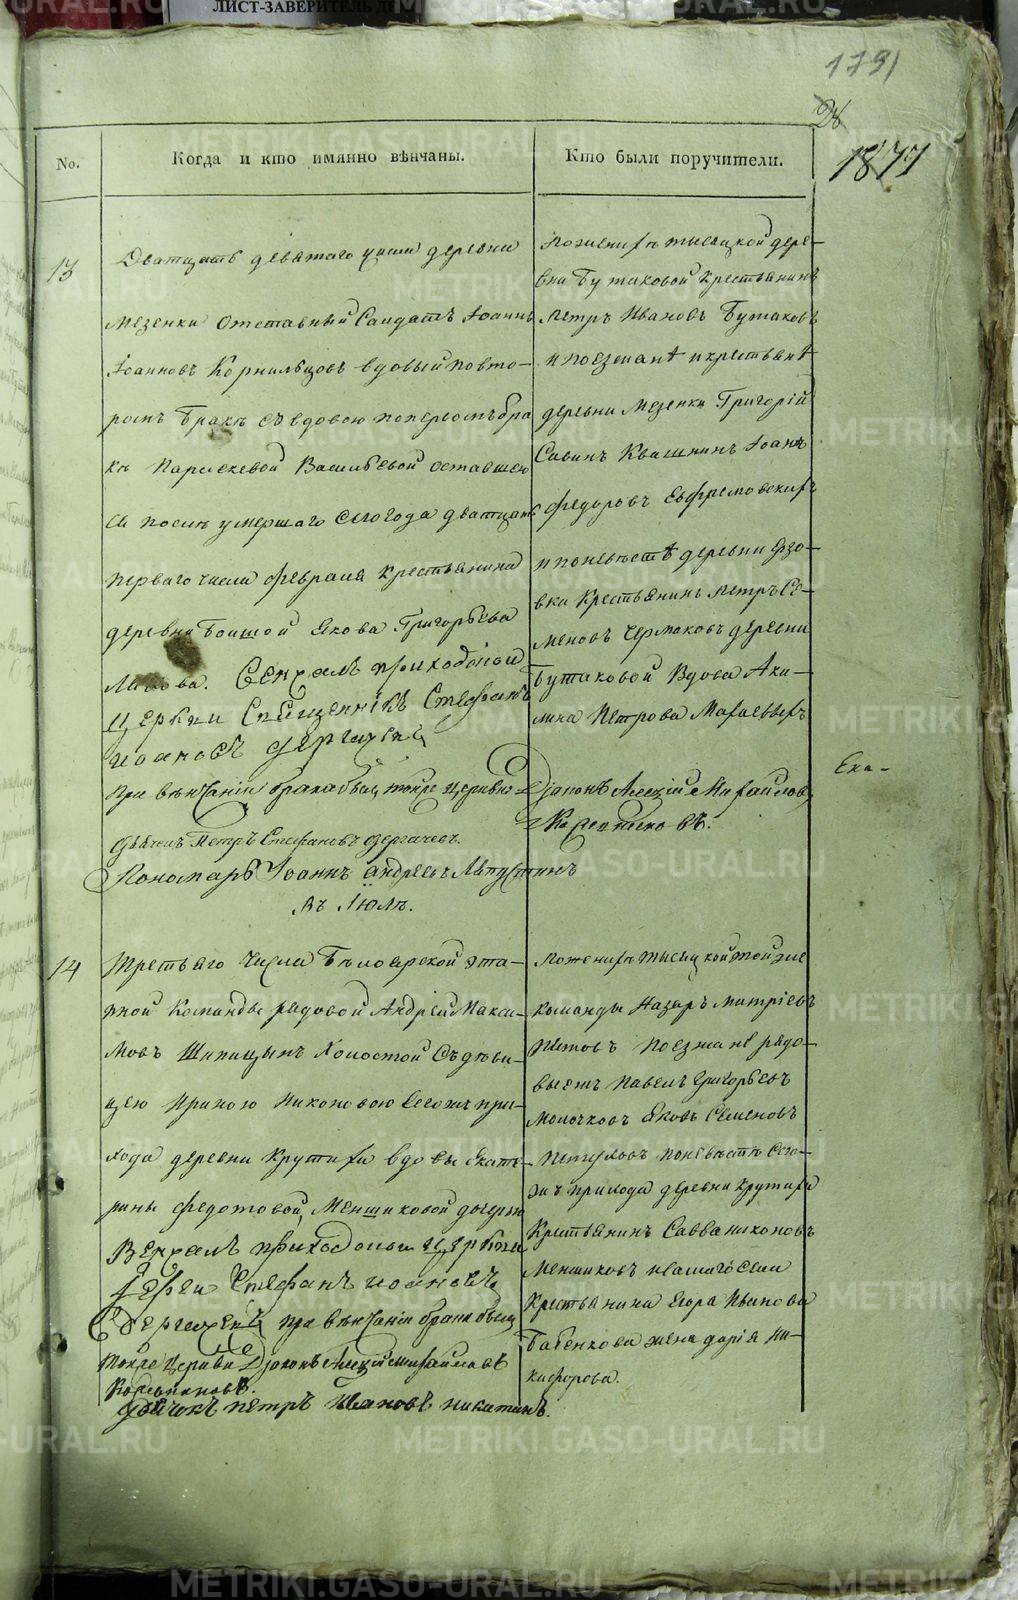 ЛИСТ-ЗАВЕРИТЕЛЬ ДЕ
1791
28
1877
No.
Когда и кто имянно вѣнчаны.
Кто были поручители.
13
Дватцать девятаго числа деревни
Мезенки Отставный Салдатъ Іоаннъ
Іоанновъ Корнильцовъ вдовый повто-
ромъ бракѣ съ вдовою по первомъ бра
кѣ Параскевой Васильевой оставшею
ся после умершаго сего года дватцать
перваго числа февраля крестьянина
деревни Большой Якова Григорьева
Венчалъ приходской
церкви Священникъ Стефанъ
Иоановъ Дергачевъ
При вѣнчаніи брака былъ тойже церкви
Дьячекъ Петръ Стефановъ Дергачевъ.
Пономарь Іоаннъ Андреевъ Лапустинъ
Въ Іюлѣ.
По женихѣ тысяцкой дере-
вни Бутаковой крестьянинъ
Петръ Ивановъ Бутаковъ
и поезжанѣ крестьянѣ
деревни Мезенки Григорій
Савинъ Квашнинъ Іоаннъ
Федоровъ Евфремовскихъ
и по невѣстѣ деревни
вки Крестьянинъ Петръ Се-
меновъ Чермаковъ деревни
Бутаковой Вдова Аки-
лина Петрова
Діаконъ Алексій Михайловъ
Ека-
14
Третьяго числа Бѣлоярской эта-
пной Команды рядовой Андрей Макси-
мовъ Шипицынъ Холостой съ дѣви-
цею Ириною Никоновою сегожъ при-
хода деревни Крутихи вдовы Екате-
рины Федотовой Меншиковой дочерью
Венчалъ приходской церкви
Іерей Стефанъ Иоановъ
Дергачевъ при вѣнчаніи брака былъ
тойже Церкви Діаконъ Алексій Михайловъ
Дьячокъ Петръ Ивановъ Никитинъ.
По женихѣ тысяцкой тойже
команды Назаръ Митріевъ
Шетовъ поезжанѣ рядо-
выетъ Павелъ Григорьевъ
Молочковъ Яковъ Семеновъ
Петуховъ по невѣстѣ сего-
жъ прихода деревни Крутихи
Крестьянинъ Савва Никоновъ
Меншиковъ и
Крестьянина Егора Иванова
Бабенкова жена Дарія Ни-
кифорова.
METRIKI.GASO-URAL.RU